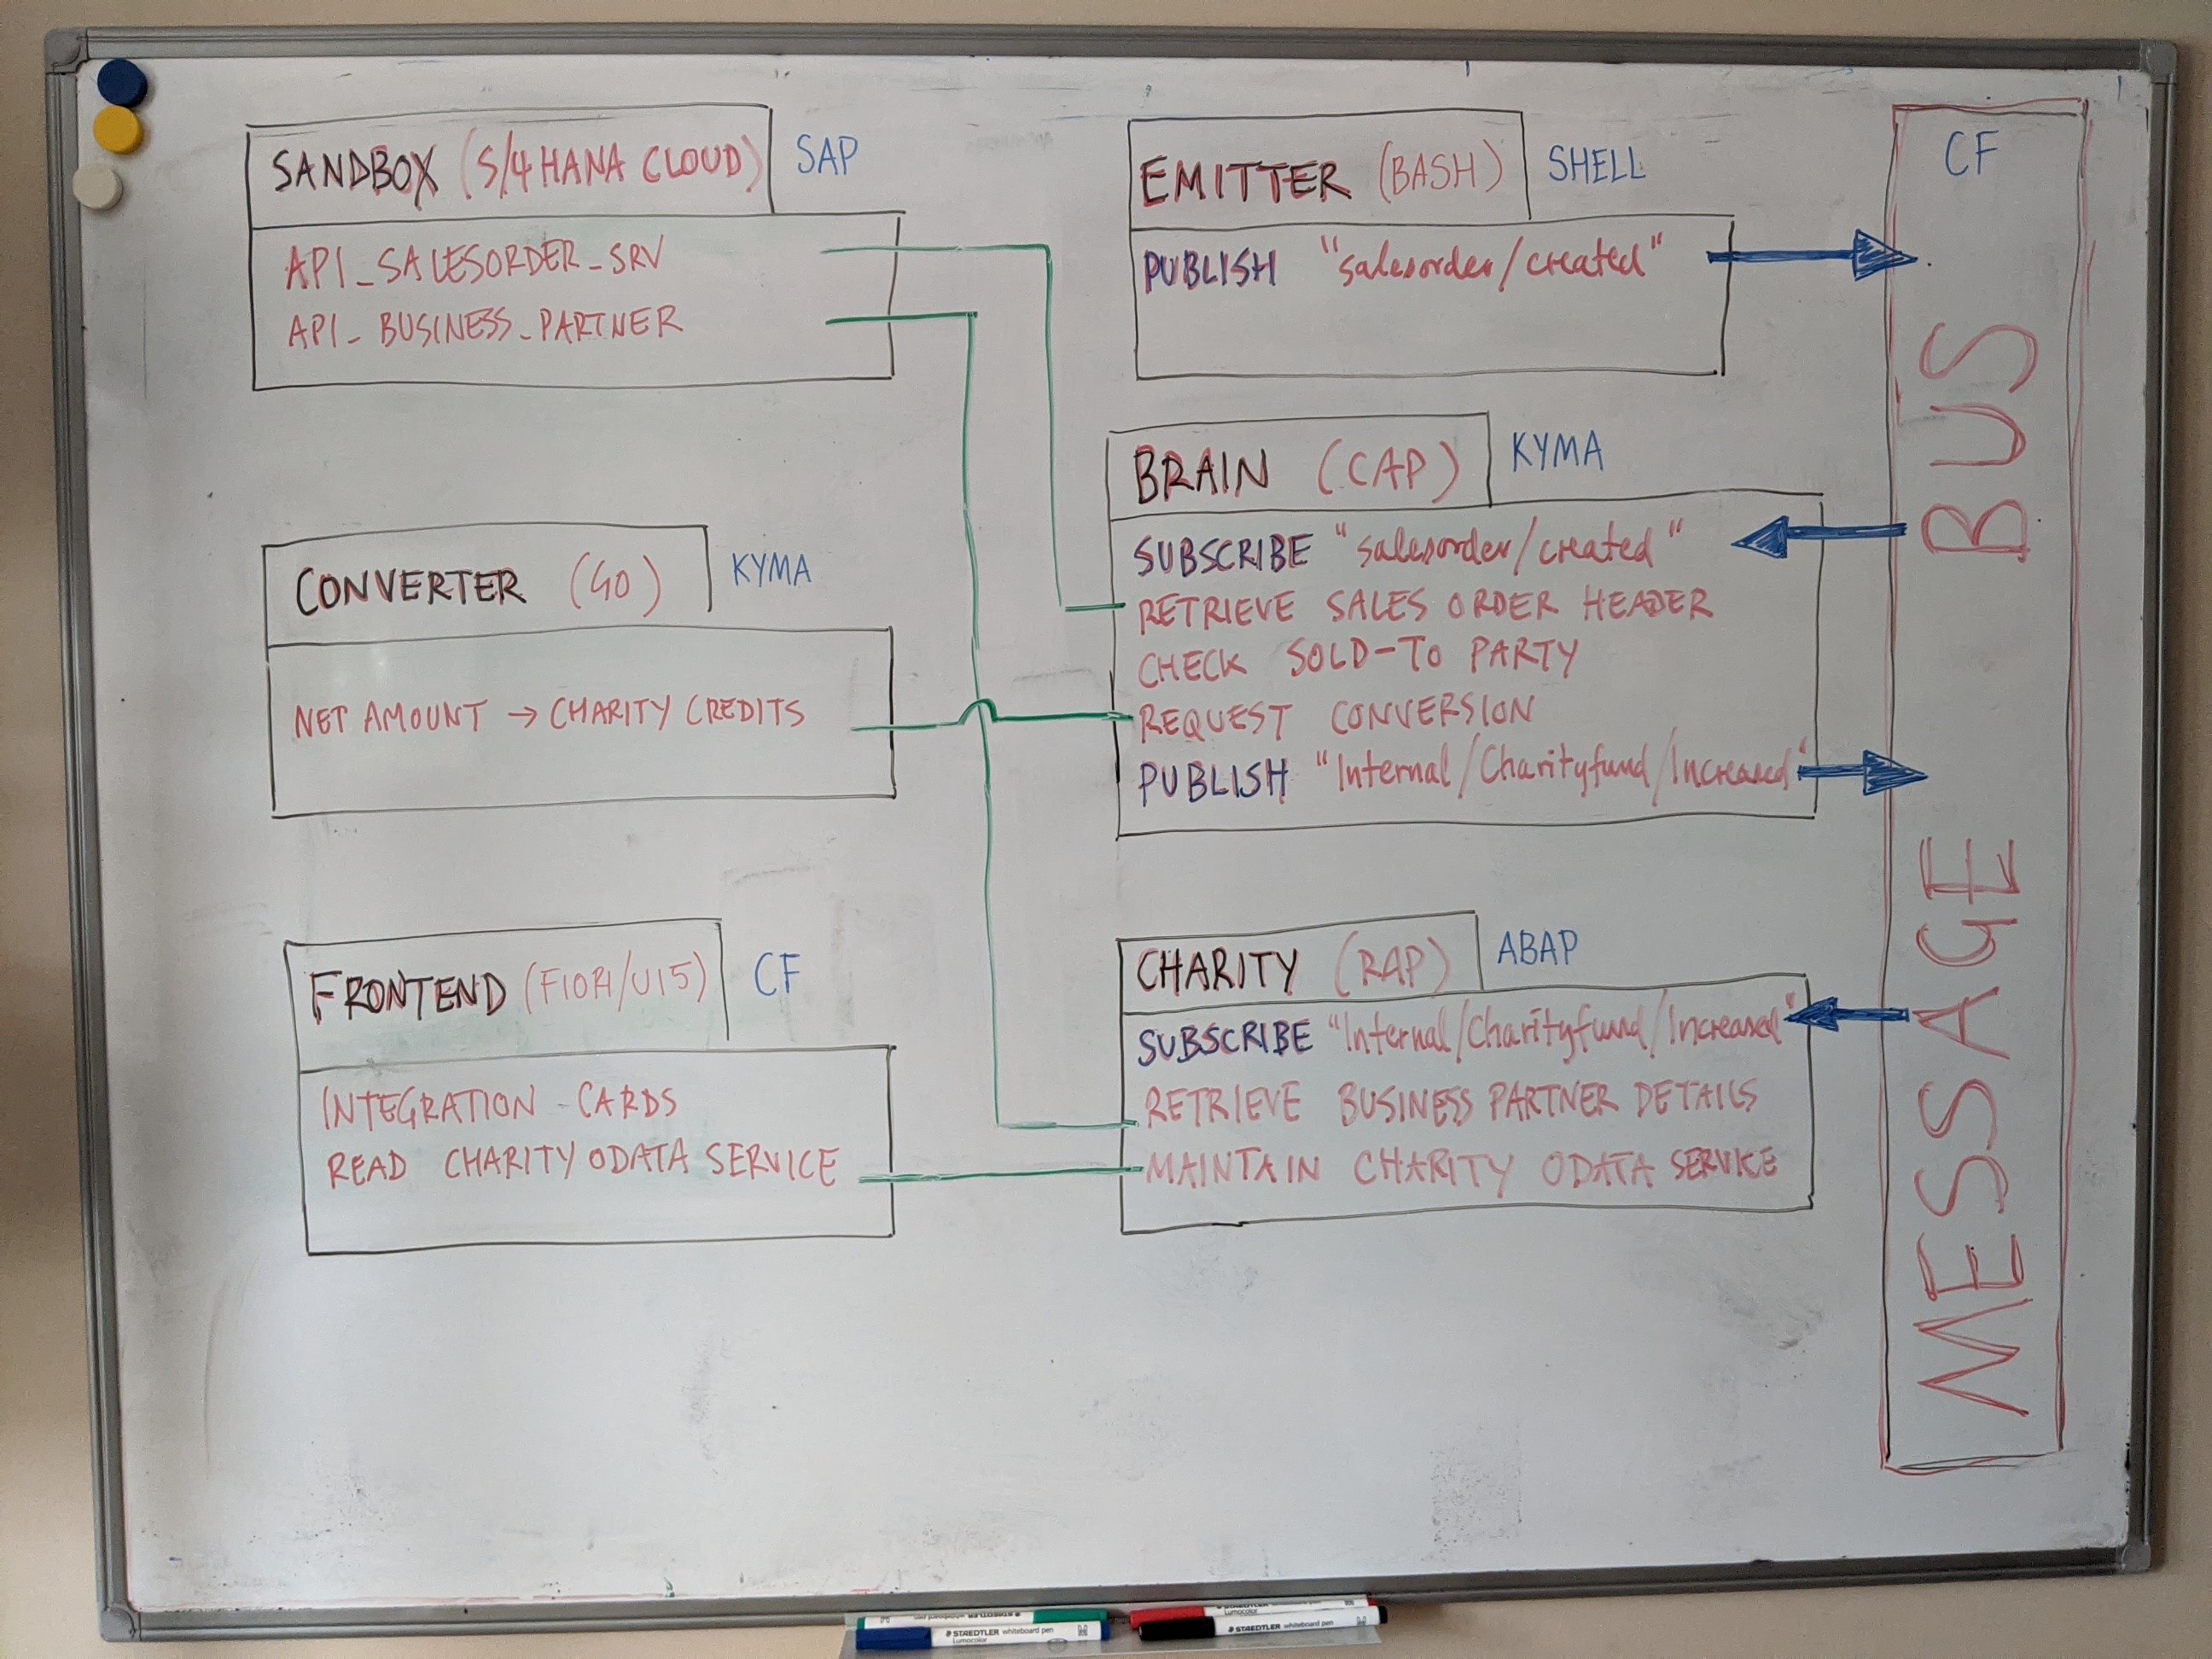 SANDBOX (S/4 HANA CLOUD) SAP
API_SALESORDER_SRV
API_BUSINESS_PARTNER
EMITTER (BASH) SHELL
PUBLISH "salesorder/created"
CONVERTER (GO) KYMA
NET AMOUNT → CHARITY CREDITS
BRAIN (CAP) KYMA
SUBSCRIBE "salesorder/created"
RETRIEVE SALES ORDER HEADER
CHECK SOLD-TO PARTY
REQUEST CONVERSION
PUBLISH "Internal/Charityfund/Increased"
FRONTEND (FIORI/UI5) CF
INTEGRATION CARDS
READ CHARITY ODATA SERVICE
CHARITY (RAP) ABAP
SUBSCRIBE "Internal/Charityfund/Increased"
RETRIEVE BUSINESS PARTNER DETAILS
MAINTAIN CHARITY ODATA SERVICE
CF
MESSAGE BUS
STAEDTLER whiteboard pen
Lumocolor
Lumocolor
STAEDTLER whiteboard pen